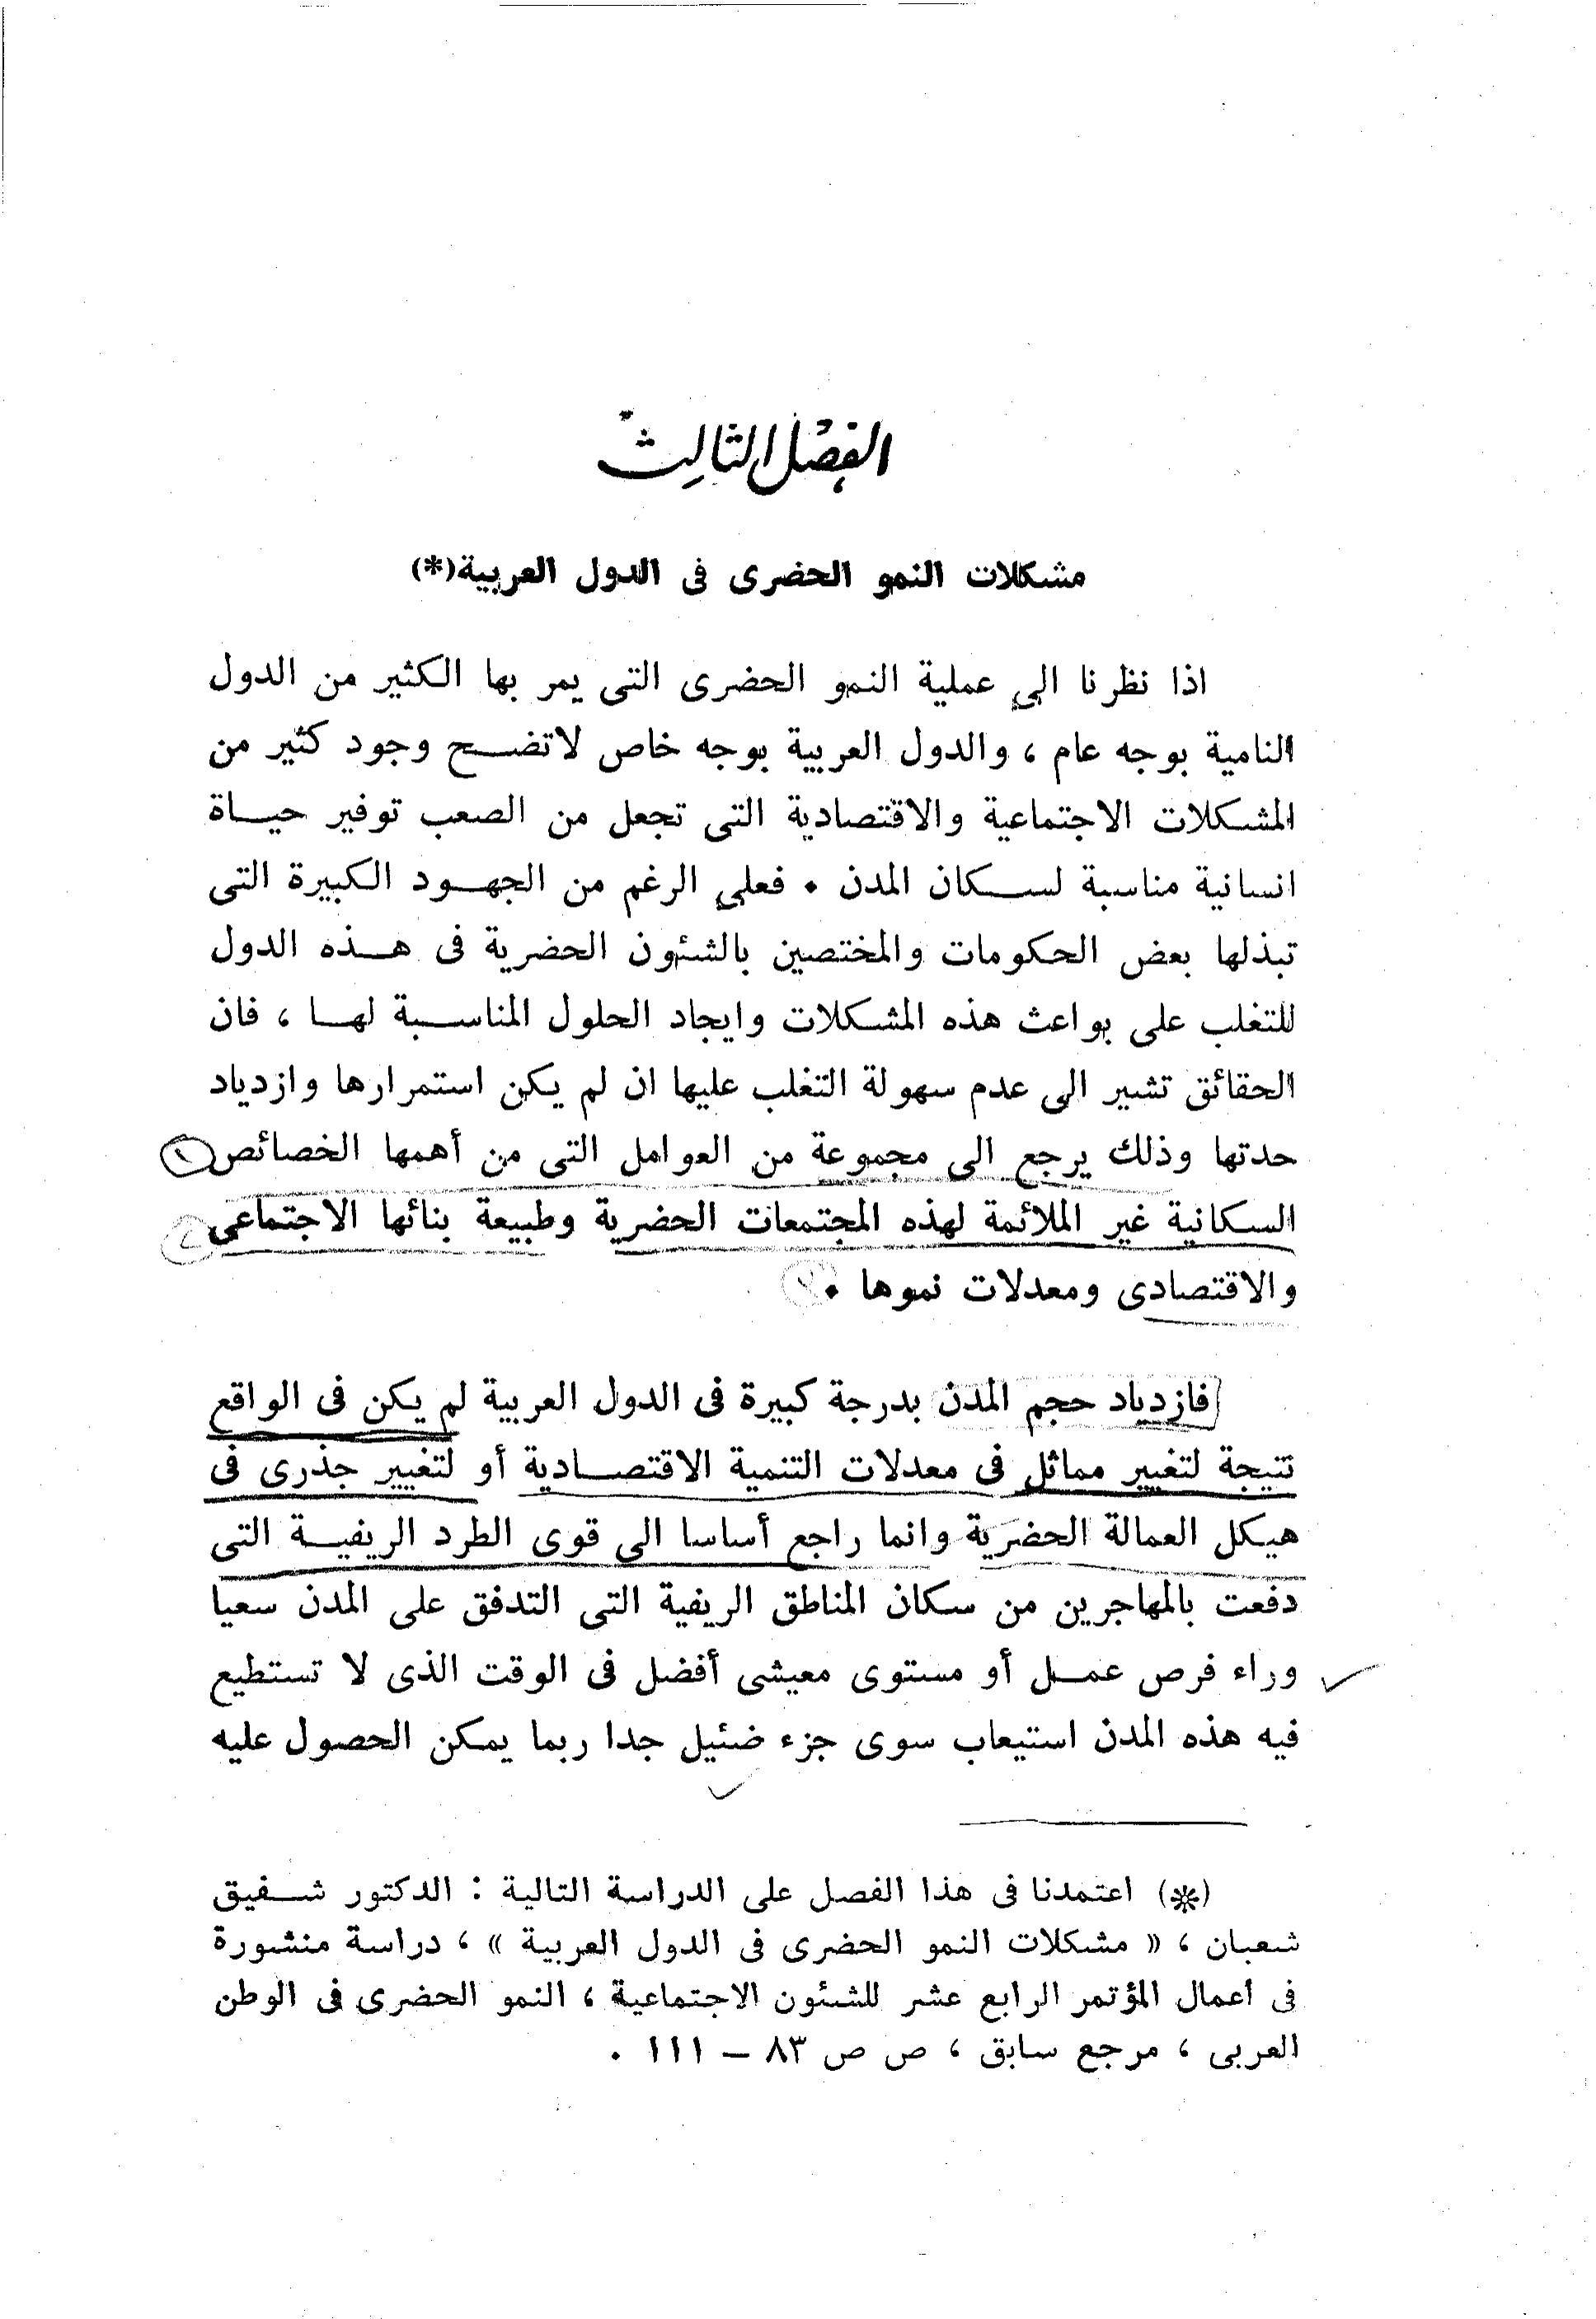 الفصل الثالث
مشكلات النمو الحضرى فى الدول العربية(*)
اذا نظرنا الى عملية النمو الحضرى التى يمر بها الكثير من الدول
النامية بوجه عام ، والدول العربية بوجه خاص لاتضح وجود كثير من
المشكلات الاجتماعية والاقتصادية التى تجعل من الصعب توفير حياة
انسانية مناسبة لسكان المدن . فعلى الرغم من الجهود الكبيرة التى
تبذلها بعض الحكومات والمختصين بالشئون الحضرية فى هذه الدول
للتغلب على بواعث هذه المشكلات وايجاد الحلول المناسبة لها ، فان
الحقائق تشير الى عدم سهولة التغلب عليها ان لم يكن استمرارها وازدياد
حدتها وذلك يرجع الى مجموعة من العوامل التى من أهمها الخصائص ١
السكانية غير الملائمة لهذه المجتمعات الحضرية وطبيعة بنائها الاجتماعى
والاقتصادى ومعدلات نموها .
فازدياد حجم المدن بدرجة كبيرة فى الدول العربية لم يكن فى الواقع
نتيجة لتغيير مماثل فى معدلات التنمية الاقتصادية أو لتغيير جذرى فى
هيكل العمالة الحضرية وانما راجع أساسا الى قوى الطرد الريفية التى
دفعت بالمهاجرين من سكان المناطق الريفية التى التدفق على المدن سعيا
وراء فرص عمل أو مستوى معيشى أفضل فى الوقت الذى لا تستطيع
فيه هذه المدن استيعاب سوى جزء ضئيل جدا ربما يمكن الحصول عليه
(*) اعتمدنا فى هذا الفصل على الدراسة التالية : الدكتور شفيق
شعبان ، « مشكلات النمو الحضرى فى الدول العربية » ، دراسة منشورة
فى أعمال المؤتمر الرابع عشر للشئون الاجتماعية ، النمو الحضرى فى الوطن
العربى ، مرجع سابق ، ص ص ٨٣ – ١١١ .